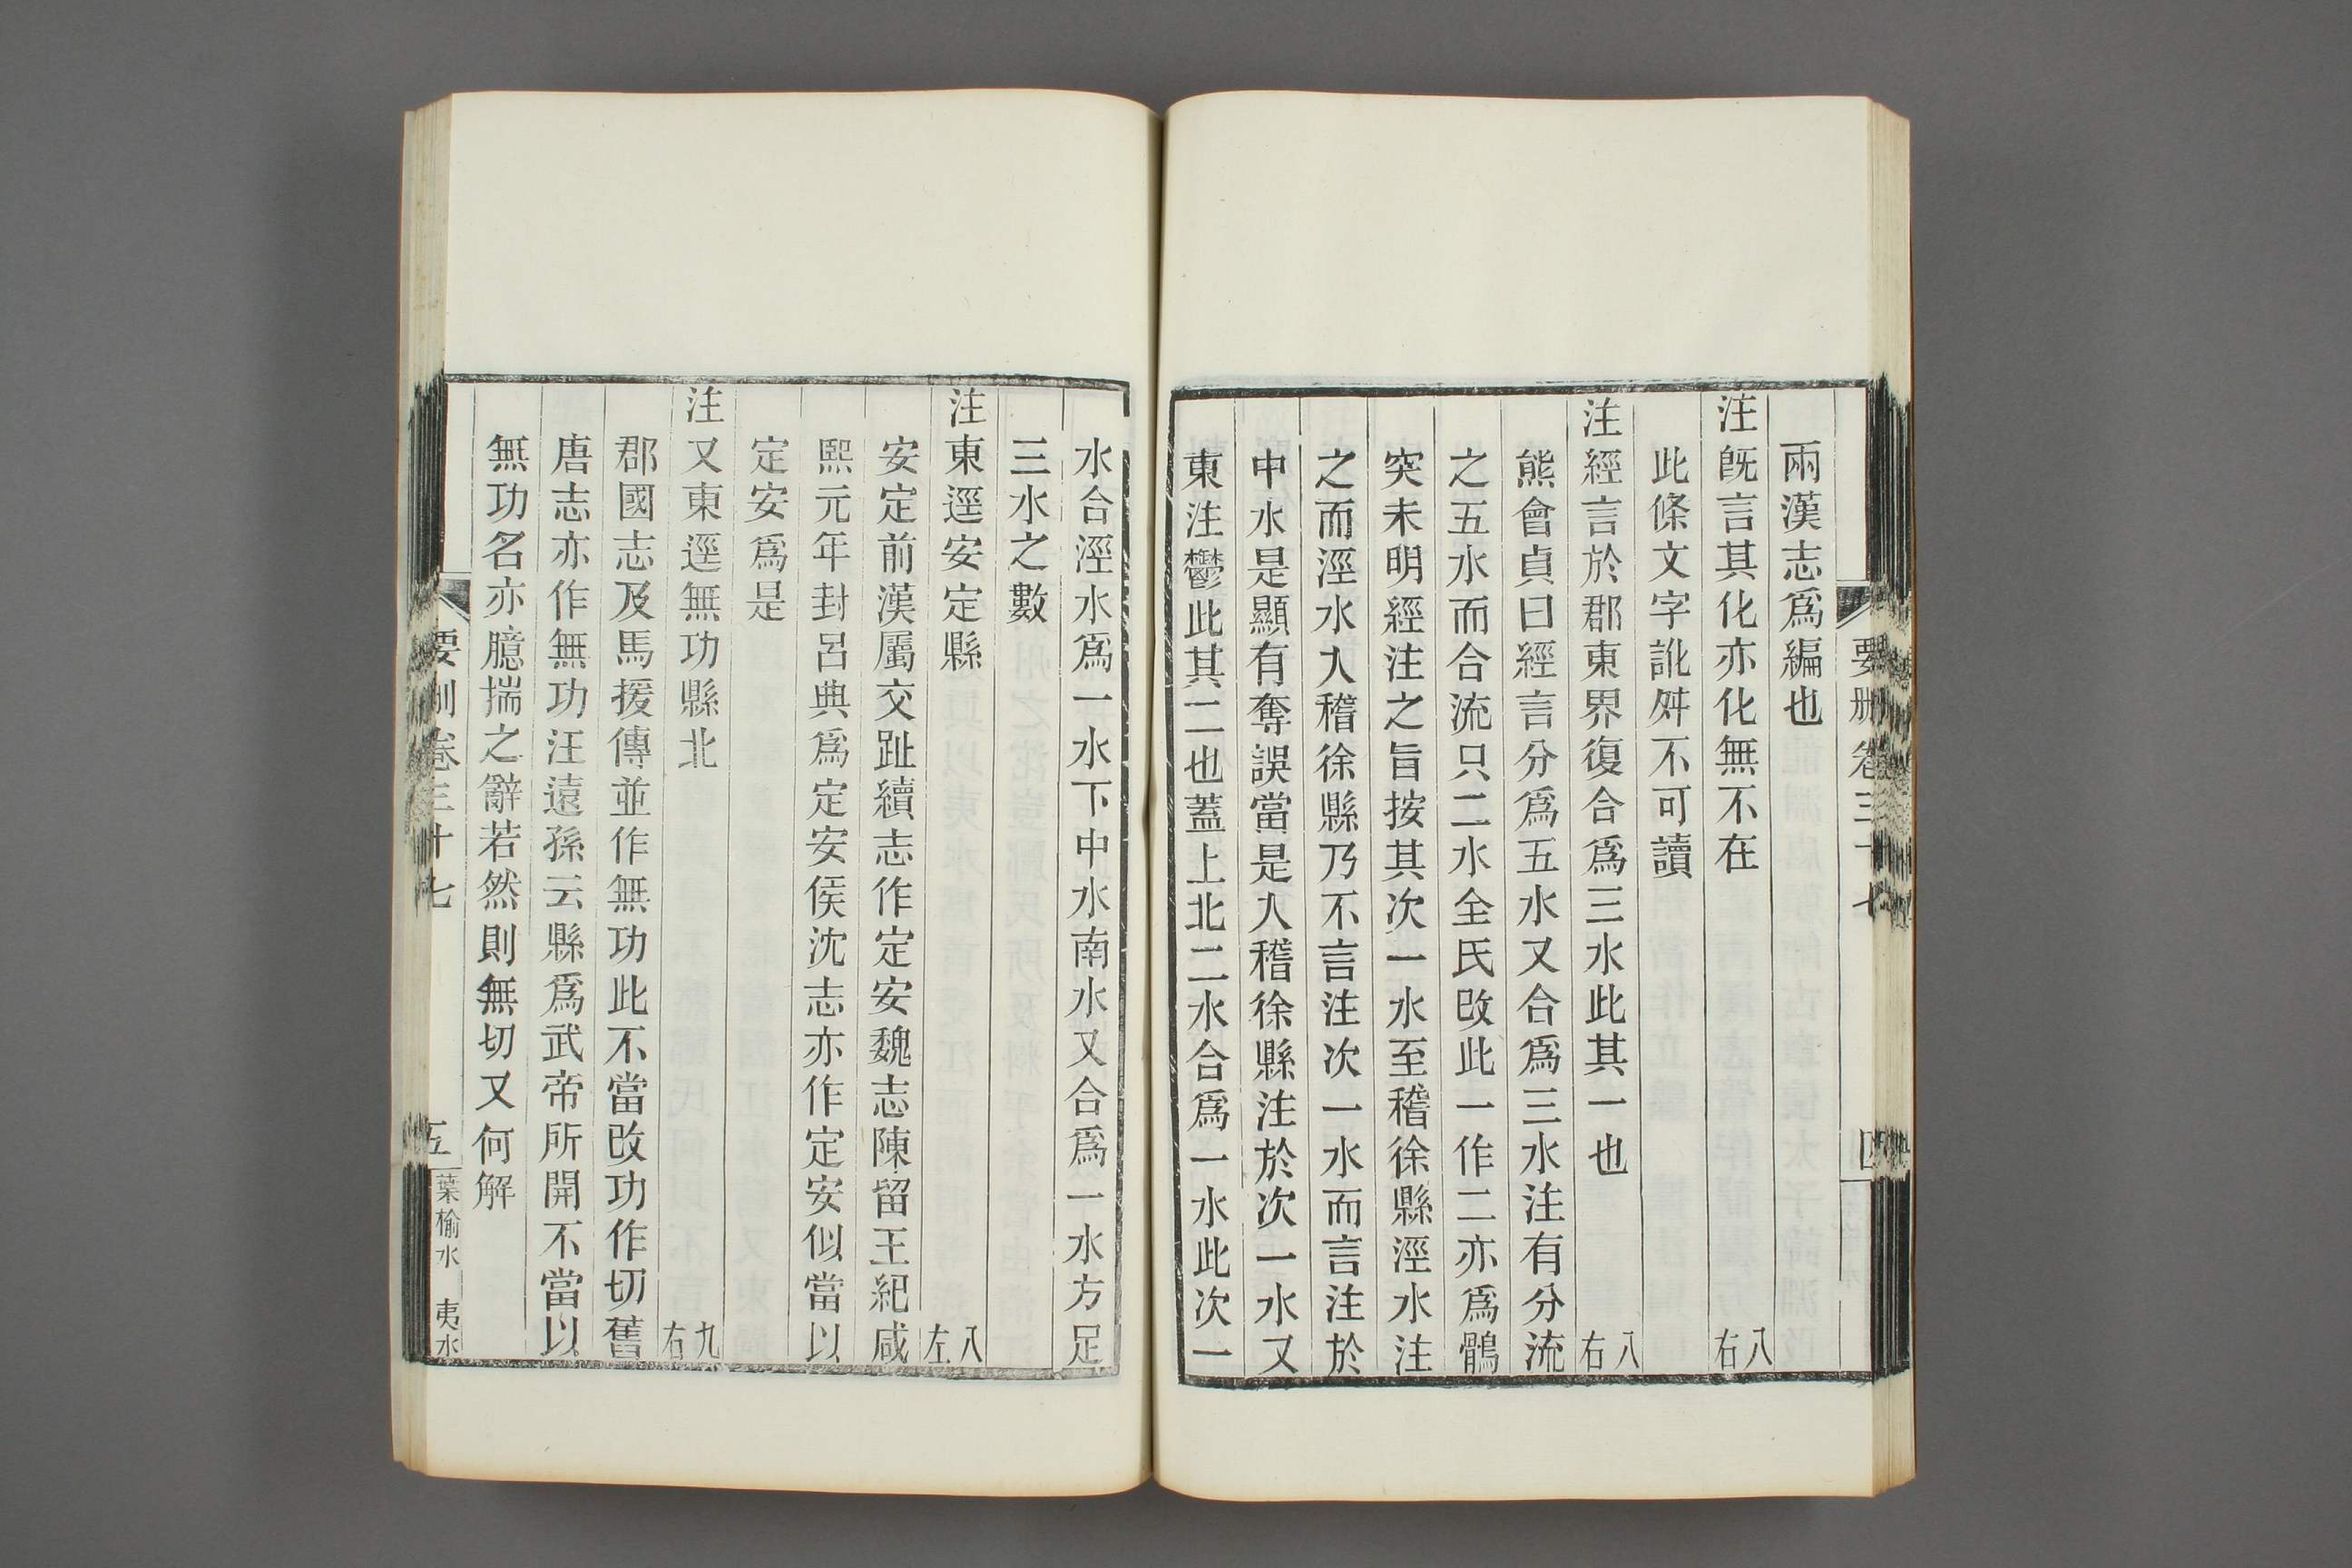 要刪卷三十七
四
兩漢志爲編也
注旣言其化亦化無不在 八右
此條文字訛舛不可讀
注經言於郡東界復合爲三水此其一也 八右
熊會貞曰經言分爲五水又合爲三水注有分流
之五水而合流只二水全氏改此一作二亦爲鶻
突未明經注之旨按其次一水至稽徐縣涇水注
之而涇水入稽徐縣乃不言注次一水而言注於
中水是顯有奪誤當是入稽徐縣注於次一水又
東注鬱此其二也蓋上北二水合爲一水此次一
水合涇水爲一水下中水南水又合爲一水方足
三水之數
注東逕安定縣 八左
安定前漢屬交趾續志作定安魏志陳留王紀咸
熙元年封呂典爲定安侯沈志亦作定安似當以
定安爲是
注又東逕無功縣北 九右
郡國志及馬援傳並作無功此不當改功作切舊
唐志亦作無功汪遠孫云縣爲武帝所開不當以
無功名亦臆揣之辭若然則無切又何解
要刪卷三十七
五
葉榆水 夷水